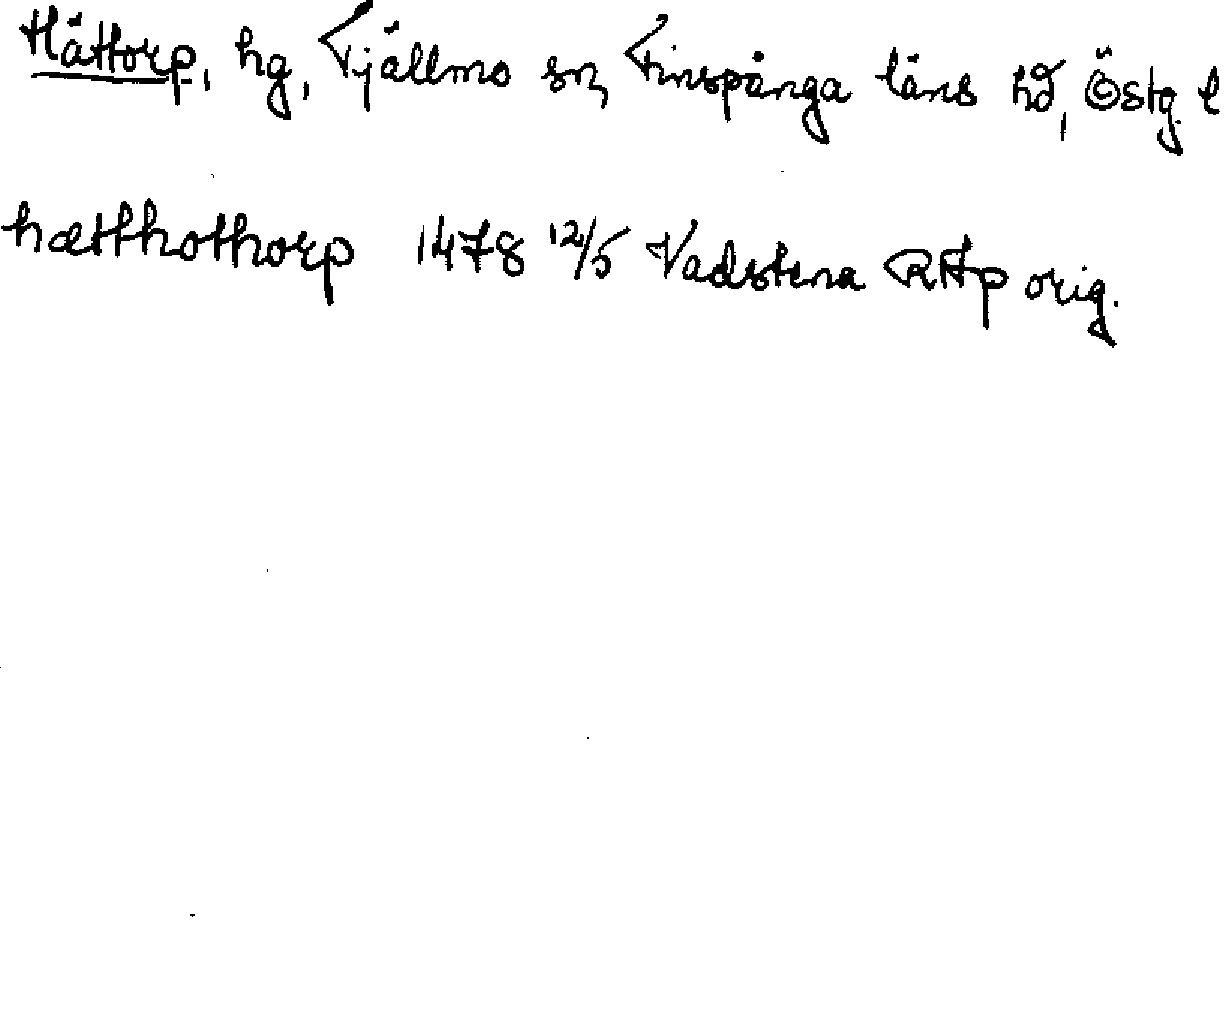 Hättorp, hg, Tjällmo sn, Finspånga läns hd, Östg. l
hætthothorp 1478 12/5 Vadstena RAp orig.